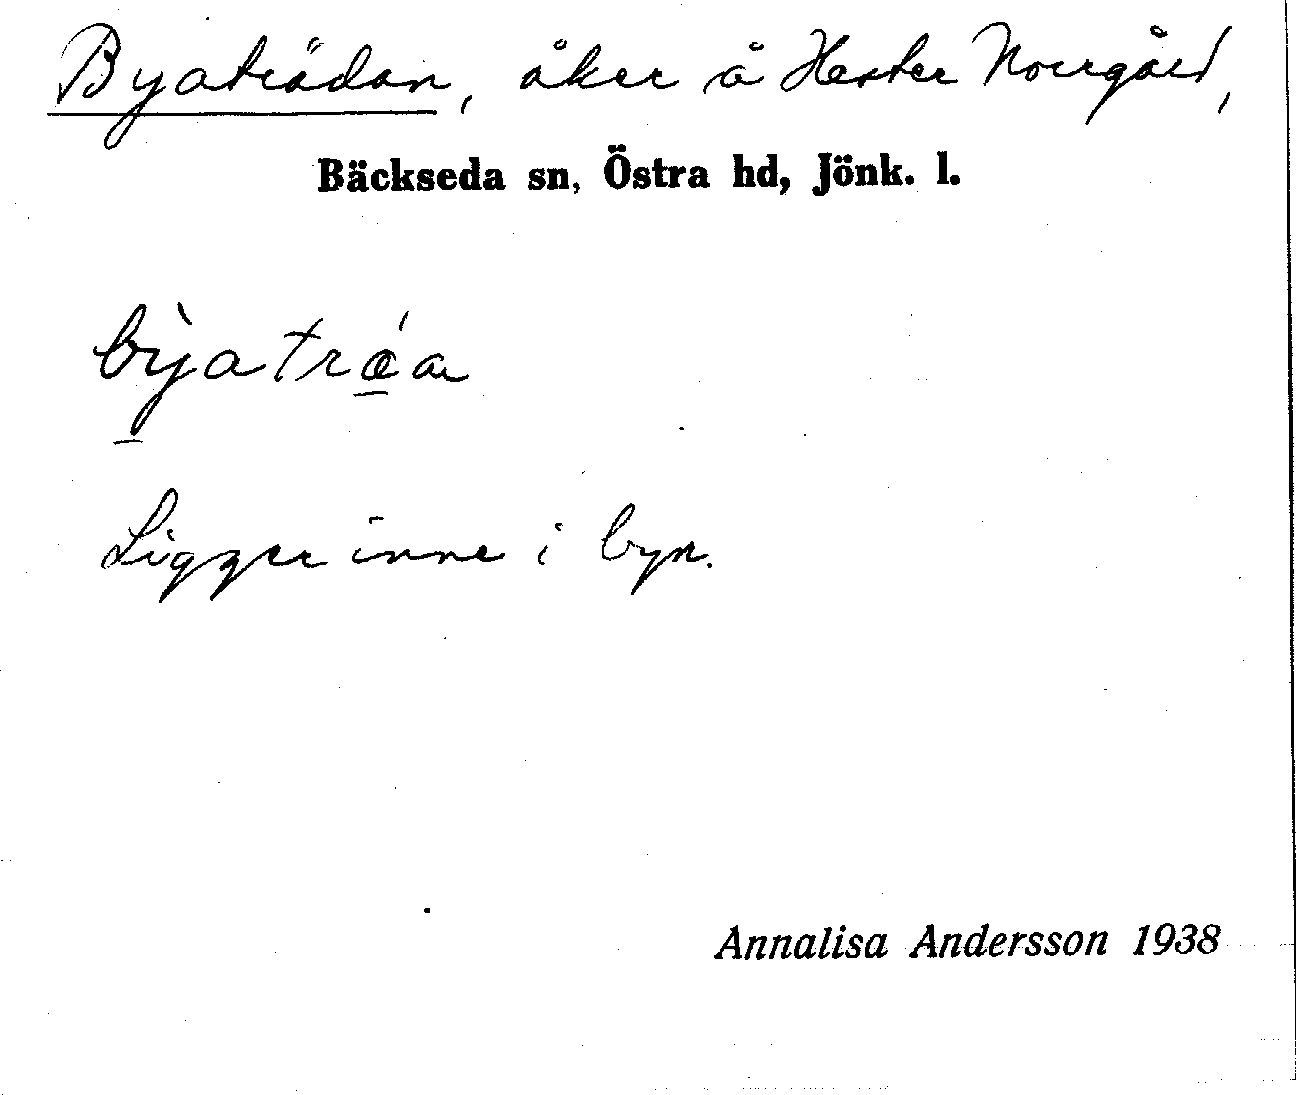 Byaträdan, åker å Hester Norrgård,
Bäckseda sn, Östra hd, Jönk. l.
Ligger inne i byn.
Annalisa Andersson 1938